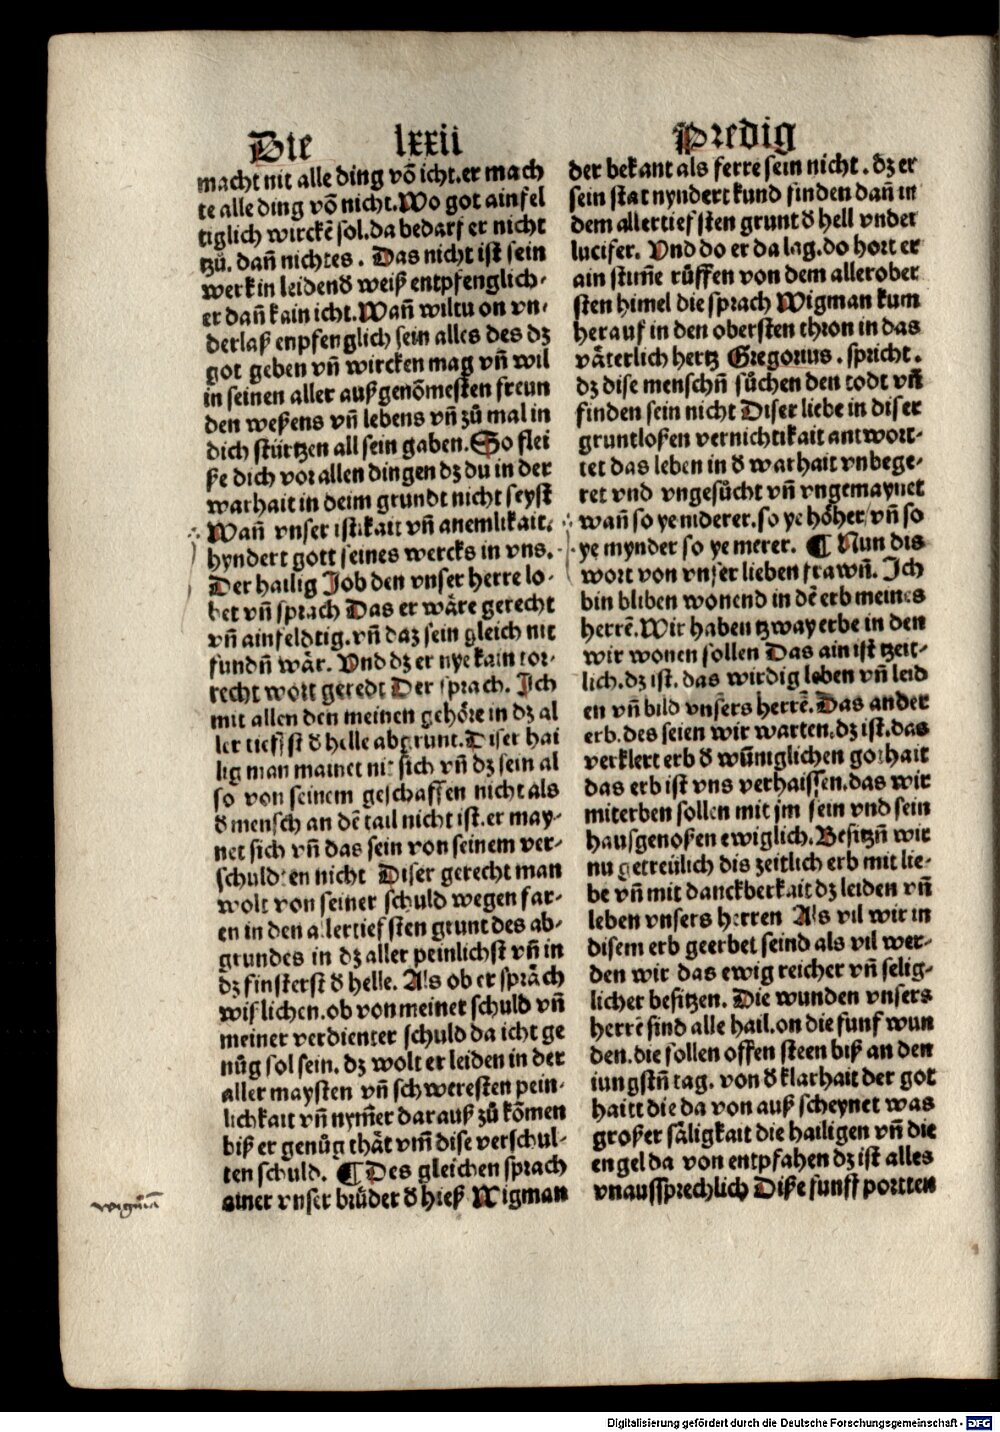 Die lxxii Predig
macht nit alle ding võ icht.er mach
te alle ding võ nicht.Wo got ainfel
tiglich wirckẽ sol.da bedarf er nicht
tzů. dañ nichtes. Das nicht ist sein
werk in leidend weiß entpfenglich-
er dañ kain icht.Wañ wiltu on vn-
derlaß enpfenglich sein alles des dz
got geben vñ wircken mag vñ wil
in seinen aller außgenõmesten freun
den weßens vñ lebens vñ zů mal in
dich stürtzen all sein gaben.So flei
ße dich vor allen dingen dz du in der
warhait in deim grundt nicht seyst
Wañ vnser istikait vñ anemlikait.
hyndert gott seines wercks in vns.
Der hailig Job den vnser herre lo-
bet vñ sprach Das er wäre gerecht
vñ ainfeldtig.vñ daz sein gleich nit
fundñ wär. Vnd dz er nye kain tor-
recht wort geredt Der sprach. Ich
mit allen den meinen gehöre in dz al
ler tiefst d helle abgrunt.Diser hai
lig man mainet nit sich vñ dz sein al
so von seinem geschaffen nicht als
d mensch an dẽ tail nicht ist.er may-
net sich vñ das sein von seinem ver-
schuldten nicht Diser gerecht man
wolt von seiner schuld wegen far-
en in den allertiefsten grunt des ab-
grundes in dz aller peinlichst vñ in
dz finsterst d helle. Als ob er spräch
wißlichen.ob von meiner schuld vñ
meiner verdienter schuld da icht ge
nůg sol sein. dz wolt er leiden in der
aller maysten vñ schweresten pein-
lichkait vñ nym̃er darauß zů kõmen
biß er genůg thät vm̃ dise verschul-
ten schuld. ¶ Des gleichen sprach
ainer vnser brůder d hieß Wigman
der bekant als ferre sein nicht. dz er
sein stat nyndert kund finden dañ in
dem allertiefsten grunt d hell vnder
lucifer. Vnd do er da lag.do hort er
ain stim̃e růffen von dem allerober
sten himel die sprach Wigman kum
herauf in den obersten thron in das
väterlich hertz Gregorius. spricht.
dz dise menschñ sůchen den todt vñ
finden sein nicht Diser liebe in diser
gruntloßen vernichtikait antwort-
tet das leben in d warhait vnbege-
ret vnd vngesůcht vñ vngemaynet
wañ so ye niderer.so ye höher/vñ so
ye mynder so ye merer. ¶ Nun dis
wort von vnser lieben frawñ. Ich
bin bliben wonend in dẽ erb meines
herrẽ.Wir haben tzway erbe in den
wir wonen sollen Das ain ist tzeit-
lich.dz ist. das wirdig leben vñ leid
en vñ bild vnsers herrẽ.Das ander
erb.des seien wir warten.dz ist.das
verklert erb d wũniglichen gothait
das erb ist vns verhaissen.das wir
miterben sollen mit jm sein vnd sein
hausgenoßen ewiglich.Besitzñ wir
nu getreülich dis zeitlich erb mit lie-
be vñ mit danckberkait dz leiden vñ
leben vnsers herren Als vil wir in
disem erb geerbet seind als vil wer-
den wir das ewig reicher vñ selig-
licher besitzen. Die wunden vnsers
herrẽ sind alle hail.on die funf wun
den.die sollen offen steen biß an den
iungstñ tag. von d klarhait der got
haitt die da von auß scheynet was
großer säligkait die hailigen vñ die
engel da von entpfahen dz ist alles
vnaussprechlich Diße funff portten
Digitalisierung gefördert durch die Deutsche Forschungsgemeinschaft - DFG